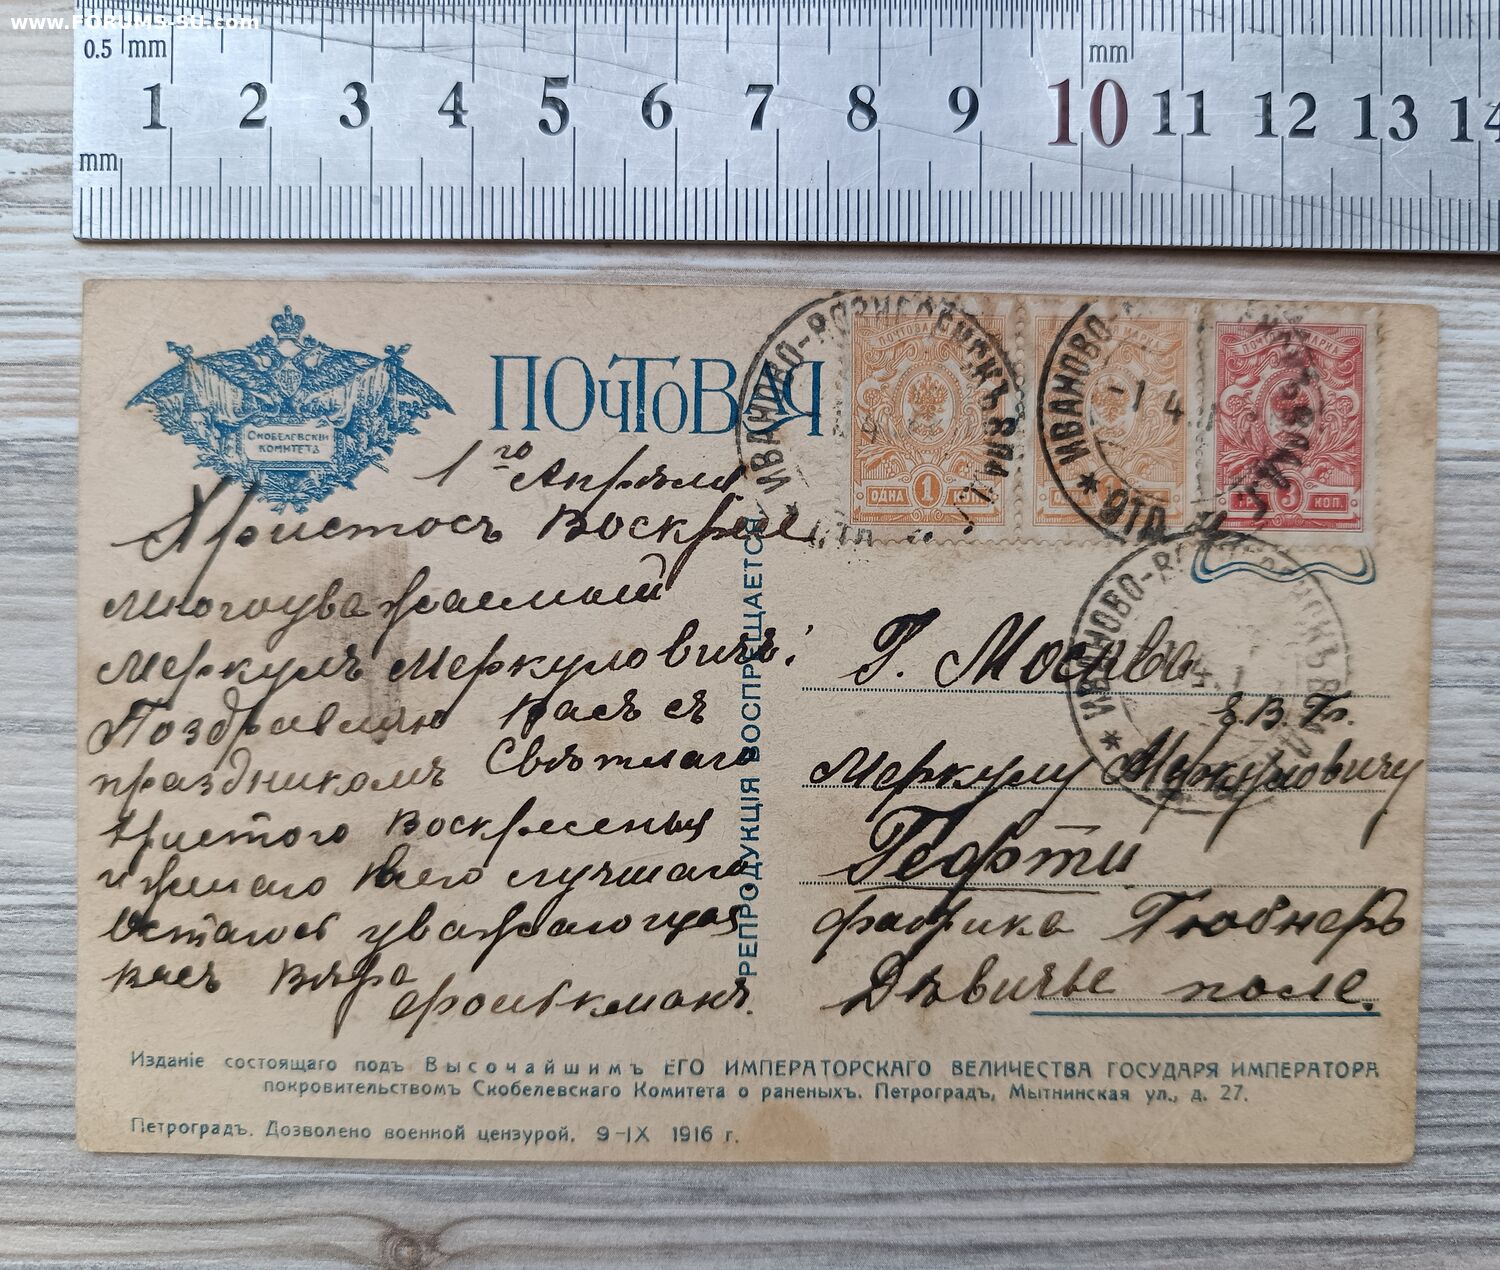 www.FORUMS-SU.com
0.5 mm
mm
mm
1 2 3 4 5 6 7 8 9 10 11 12 13 14
СКОБЕЛЕВСКІЙ
КОМИТЕТЪ
ПОЧТОВАЯ
ПОЧТОВАЯ МАРКА
ОДНА 1 КОП.
ПОЧТОВАЯ МАРКА
ОДНА 1
ПОЧТОВАЯ МАРКА
3 КОП.
ИВАНОВО-ВОЗНЕСЕНСКЪ ВЛАД
ИВАНОВО-
-1 4
* ОТД.
ИВАНОВО-ВОЗНЕСЕНСКЪ ВЛАД
*
1го Апрѣля
Христосъ Воскресе
многоуважаемый
Меркулъ Меркуловичъ!
Поздравляю васъ съ
праздникомъ Свѣтлаго
Христого Воскресенья
и желаю всего лучшаго
Остаюсь уважающая
васъ Вѣра
Фолькманъ.
РЕПРОДУКЦІЯ ВОСПРЕЩАЕТСЯ
Г. Москва
Е.В.Б.
Меркулу Меркуловичу
Геффти
фабрика Гюбнеръ
Дѣвичье поле.
Изданіе состоящаго подъ Высочайшимъ ЕГО ИМПЕРАТОРСКАГО ВЕЛИЧЕСТВА ГОСУДАРЯ ИМПЕРАТОРА
покровительствомъ Скобелевскаго Комитета о раненыхъ. Петроградъ, Мытнинская ул., д. 27.
Петроградъ. Дозволено военной цензурой. 9-IX 1916 г.